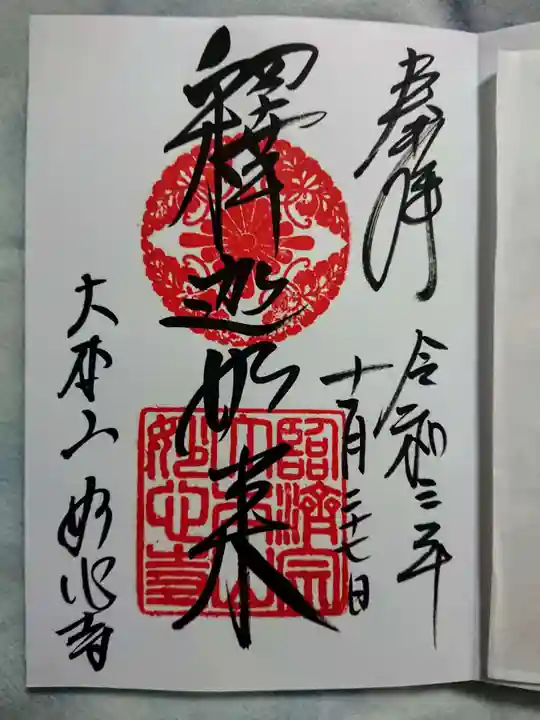 奉拝
令和三年
十一月二十七日
釋迦如来
大本山妙心寺
臨濟宗
大本山
妙心